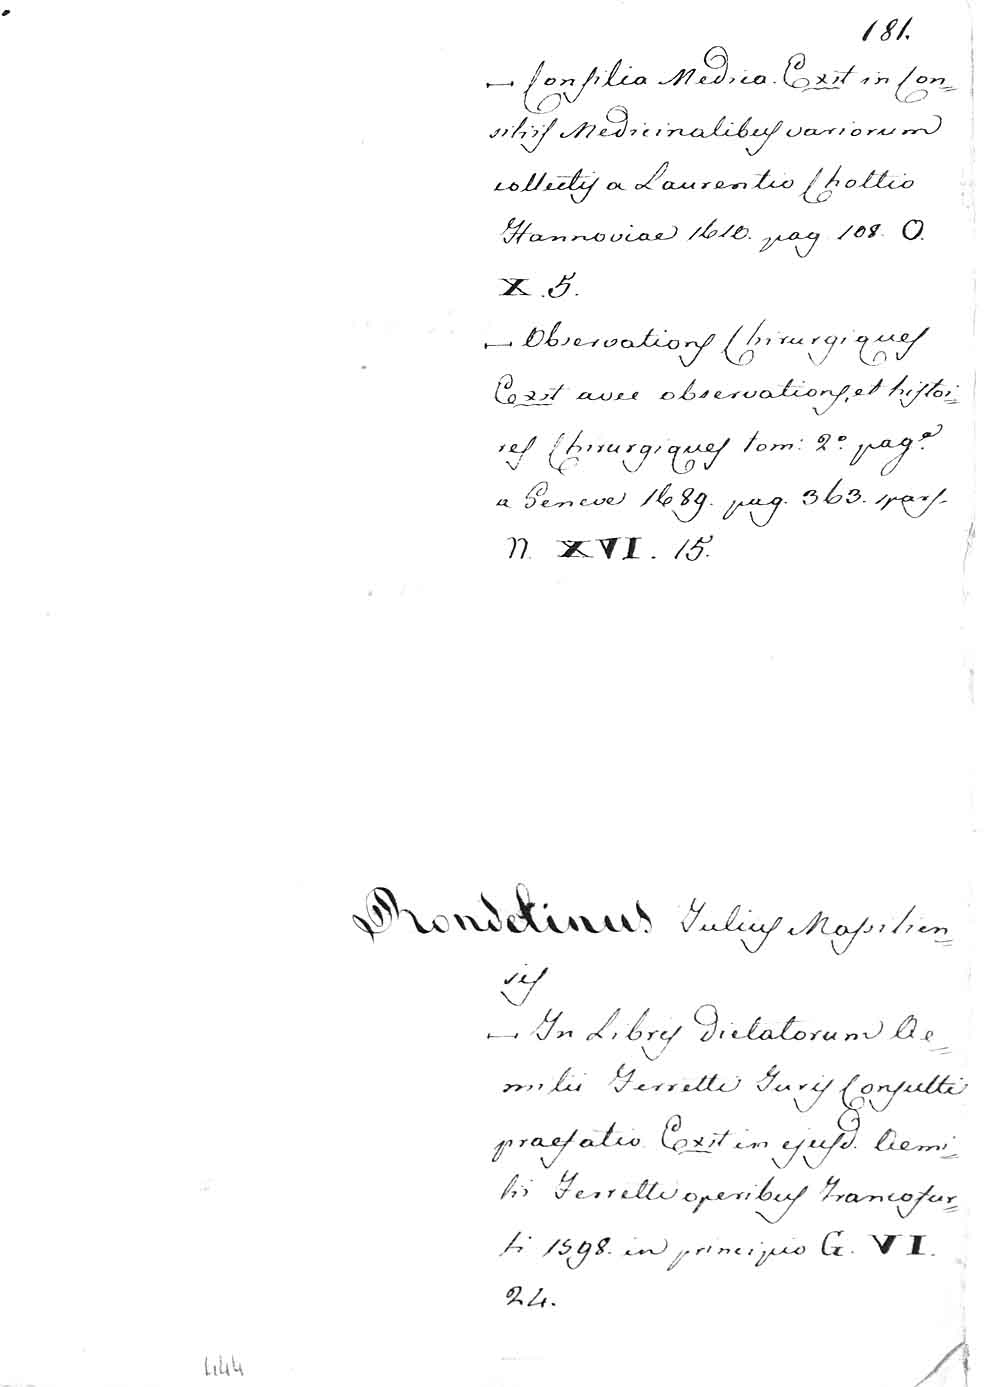 181.
— Consilia Medica. Exit in Con=
siliis Medicinalibus variorum
collectis a Laurentio Choltio
Hannoviae 1610. pag 108. O.
X. 5.
— Observations Chirurgiques
Exit avec observations, et histoi=
res Chirurgiques tom: 2º. pag.ª
a Geneve 1689. pag. 363. spars.
N. XVI. 15.
Rondelinus Julius Massilien=
sis
— In Libris Dictatorum Ae=
milii Ferretti Juris Consulti
praefatio. Exit in ejusd. Aemi=
lii Ferretti operibus Francofur=
ti 1598. in principio G. VI.
24.
444